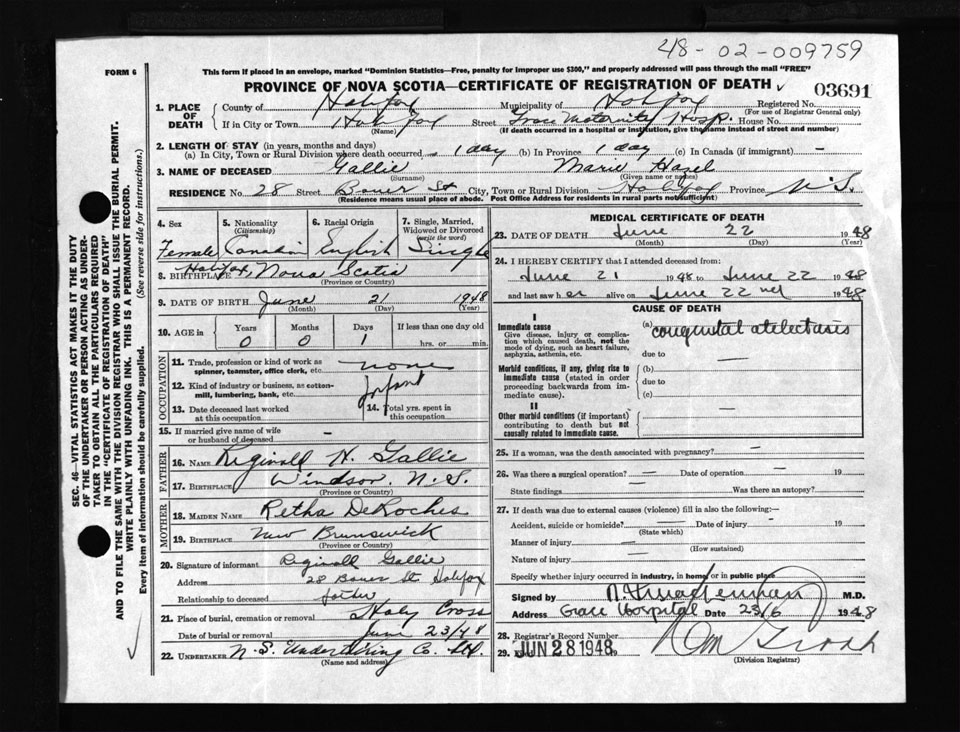 48-02-009759
FORM 6
This form if placed in an envelope, marked "Dominion Statistics—Free, penalty for improper use $300," and properly addressed will pass through the mail "FREE"
PROVINCE OF NOVA SCOTIA—CERTIFICATE OF REGISTRATION OF DEATH
03691
1. PLACE OF DEATH
County of Halifax Municipality of Halifax Registered No.
(For use of Registrar General only)
If in City or Town Halifax Street Grace Maternity Hosp. House No.
(Name) (If death occurred in a hospital or institution, give the name instead of street and number)
2. LENGTH OF STAY (in years, months and days)
(a) In City, Town or Rural Division where death occurred 1 day (b) In Province 1 day (c) In Canada (if immigrant) —
3. NAME OF DECEASED Gallie Marie Hazel
(Surname) (Given name or names)
RESIDENCE No. 28 Street Bauer St City, Town or Rural Division Halifax Province N.S.
(Residence means usual place of abode. Post Office Address for residents in rural parts not sufficient)
4. Sex 5. Nationality (Citizenship) 6. Racial Origin 7. Single, Married, Widowed or Divorced (write the word)
Female Canadian English Single
8. BIRTHPLACE Halifax, Nova Scotia
(Province or Country)
9. DATE OF BIRTH June 21 1948
(Month) (Day) (Year)
10. AGE in Years Months Days If less than one day old
0 0 1 hrs. or min.
OCCUPATION
11. Trade, profession or kind of work as spinner, teamster, office clerk, etc. none
12. Kind of industry or business, as cotton-mill, lumbering, bank, etc. Infant
13. Date deceased last worked at this occupation
14. Total yrs. spent in this occupation
15. If married give name of wife or husband of deceased —
FATHER
16. NAME Reginald H. Gallie
17. BIRTHPLACE Windsor, N.S.
(Province or Country)
MOTHER
18. MAIDEN NAME Retha DeRoches
19. BIRTHPLACE New Brunswick
(Province or Country)
20. Signature of informant Reginald Gallie
Address 28 Bauer St. Halifax
Relationship to deceased father
21. Place of burial, cremation or removal Holy Cross
Date of burial or removal June 23/48
22. UNDERTAKER N.S. Undertaking Co. Ltd.
(Name and address)
MEDICAL CERTIFICATE OF DEATH
23. DATE OF DEATH June 22 1948
(Month) (Day) (Year)
24. I HEREBY CERTIFY that I attended deceased from:
June 21 1948 to June 22 1948
and last saw her alive on June 22nd 1948
CAUSE OF DEATH
I
Immediate cause
Give disease, injury or complication which caused death, not the mode of dying, such as heart failure, asphyxia, asthenia, etc.
(a) congenital atelectasis
due to —
Morbid conditions, if any, giving rise to immediate cause (stated in order proceeding backwards from immediate cause).
(b)
due to
(c)
II
Other morbid conditions (if important) contributing to death but not causally related to immediate cause.
25. If a woman, was the death associated with pregnancy? —
26. Was there a surgical operation? — Date of operation — 19
State findings Was there an autopsy?
27. If death was due to external causes (violence) fill in also the following:—
Accident, suicide or homicide? Date of injury — 19
(State which)
Manner of injury —
(How sustained)
Nature of injury
Specify whether injury occurred in industry, in home or in public place
Signed by M.D.
Address Grace Hospital Date 23/6 1948
28. Registrar's Record Number
29. JUN 28 1948
(Division Registrar)
SEC. 46—VITAL STATISTICS ACT MAKES IT THE DUTY
OF THE UNDERTAKER OR PERSON ACTING AS UNDER-
TAKER TO OBTAIN ALL THE PARTICULARS REQUIRED
IN THE "CERTIFICATE OF REGISTRATION OF DEATH"
AND TO FILE THE SAME WITH THE DIVISION REGISTRAR WHO SHALL ISSUE THE BURIAL PERMIT.
WRITE PLAINLY WITH UNFADING INK. THIS IS A PERMANENT RECORD.
Every item of information should be carefully supplied. (See reverse side for instructions.)